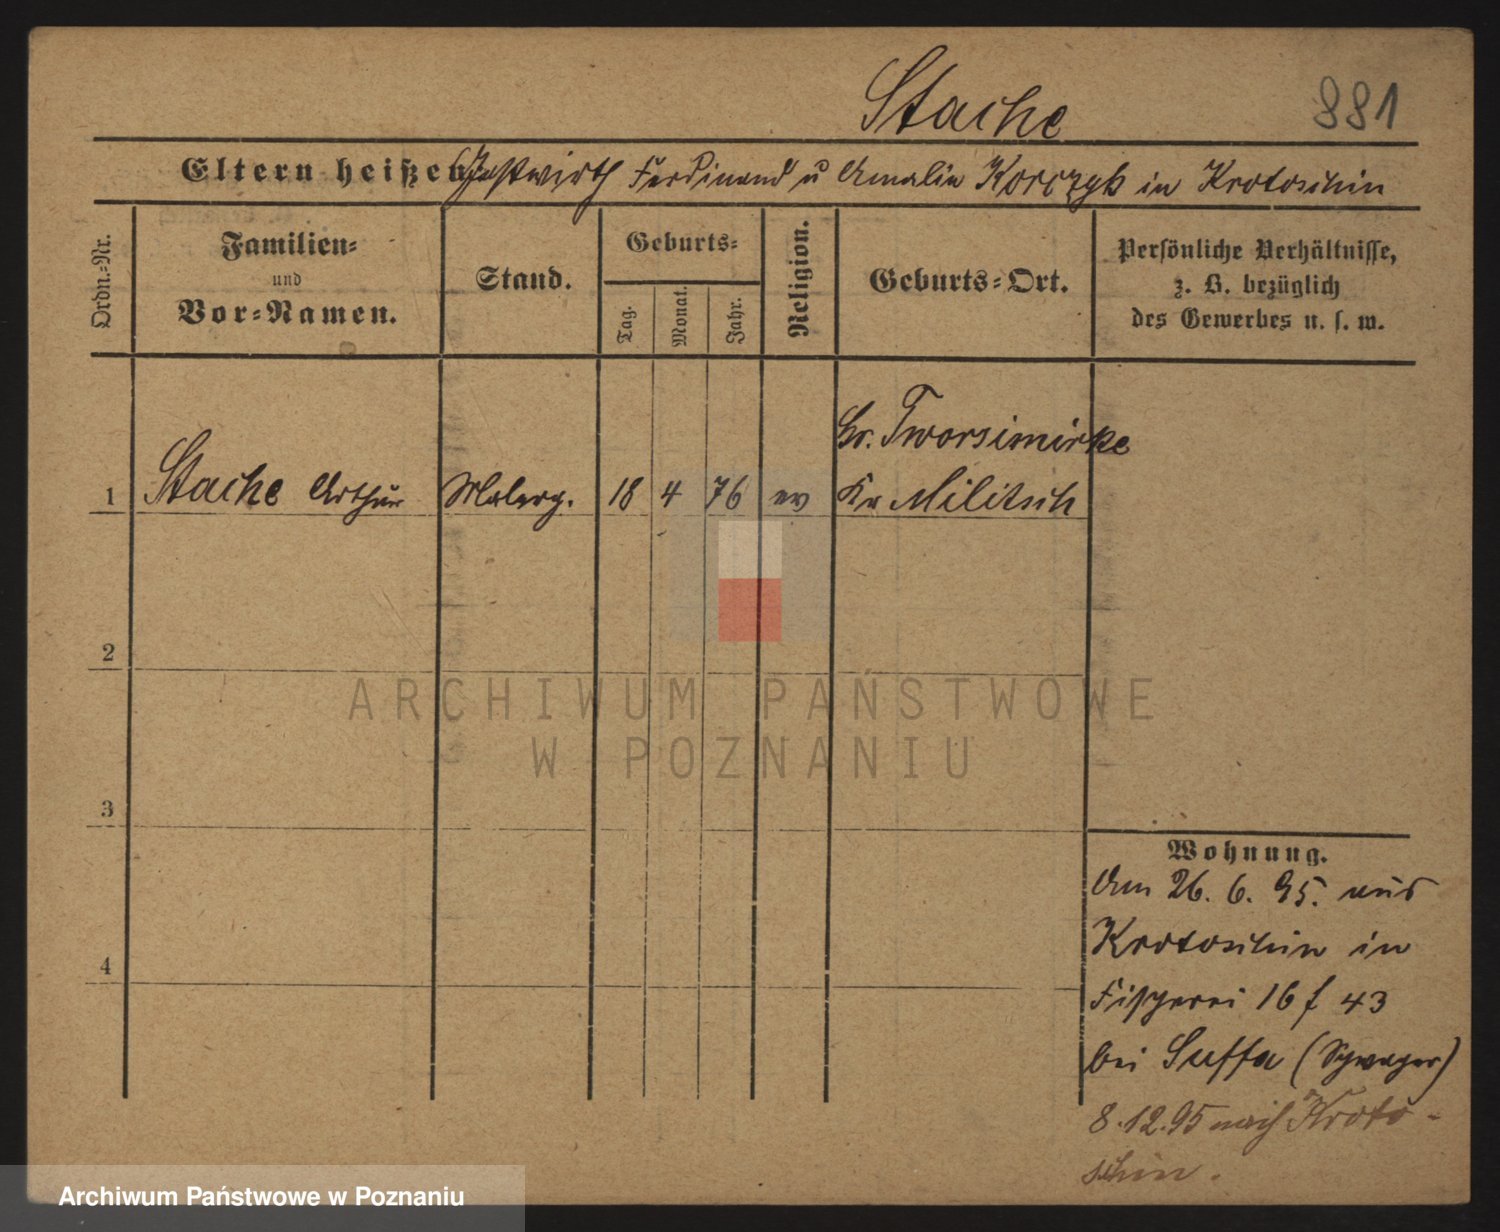 Stache 881
Eltern heißen Gastwirth Ferdinand u Amalie Korczyk in Krotoschin
Ordn.-Nr.
Familien-
und
Vor-Namen.
Stand.
Geburts-
Tag.
Monat.
Jahr.
Religion.
Geburts-Ort.
Persönliche Verhältnisse,
z. B. bezüglich
des Gewerbes u. s. w.
Gr. Tworsimirke
1 Stache Arthur Malerg. 18 4 76 ev Kr Militsch
2
3
4
Wohnung.
Am 26. 6. 95. aus
Krotoschin in
Fischerei 16 f 43
bei Suffa (Schwager)
8.12.95 nach Kroto-
schin.
ARCHIWUM PAŃSTWOWE
W POZNANIU
Archiwum Państwowe w Poznaniu